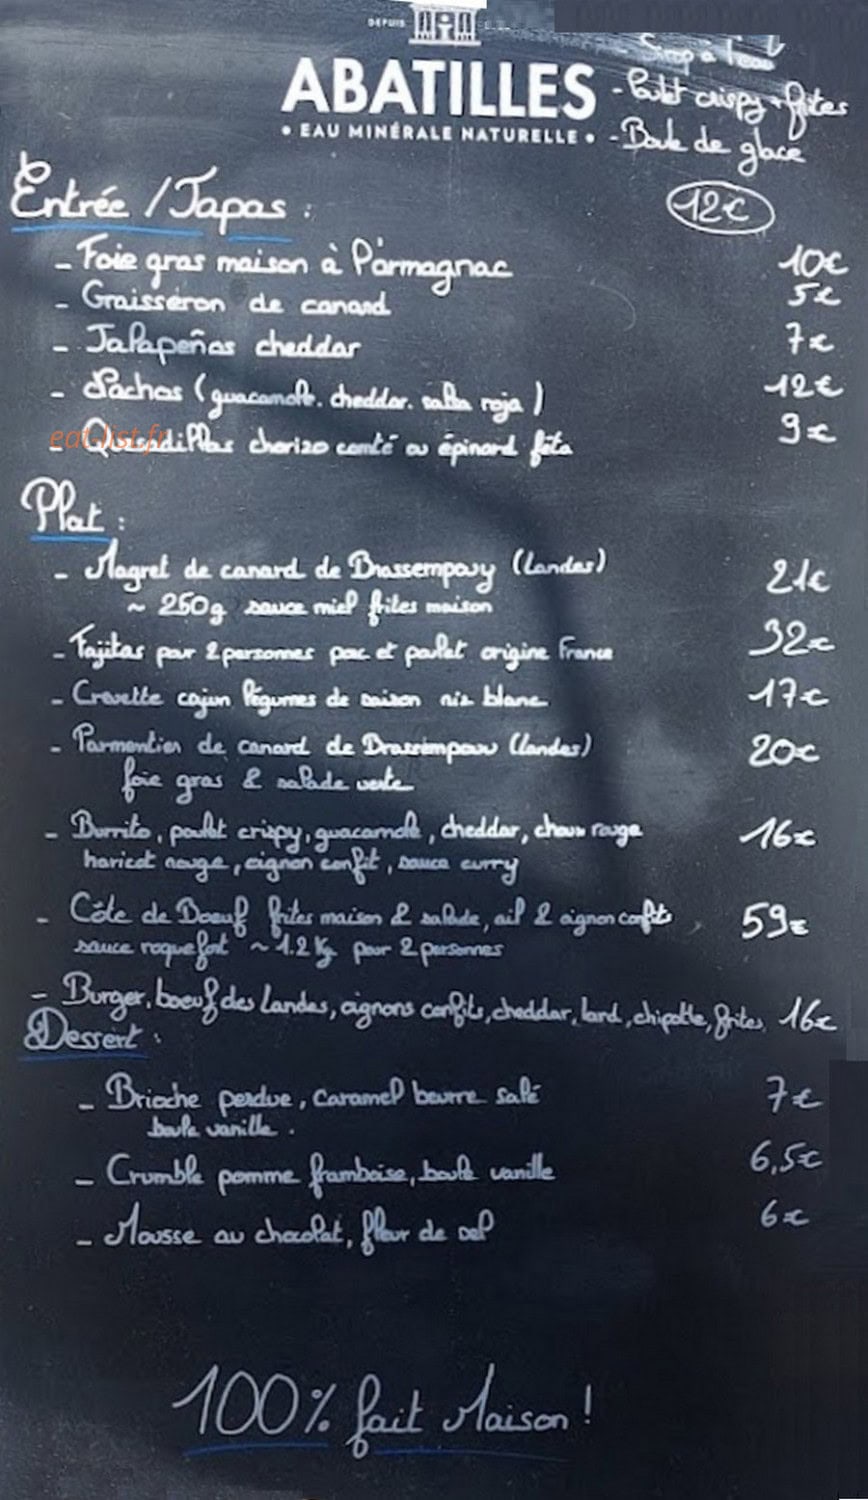 DEPUIS
ABATILLES
• EAU MINÉRALE NATURELLE •
- Sirop à l'eau
- Poulet crispy + frites
- Boule de glace
12€
Entrée / Tapas :
- Foie gras maison à l'armagnac 10€
- Graisseron de canard 5€
- Jalapeños cheddar 7€
- Nachos (guacamole. cheddar. salsa roja) 12€
- Quesadillas chorizo comté ou épinard fêta 9€
eat-list.fr
Plat :
- Magret de canard de Brassempouy (Landes) 21€
~ 250g sauce miel frites maison
- Fajitas pour 2 personnes porc et poulet origine France 32€
- Crevette cajun légumes de saison riz blanc 17€
- Parmentier de canard de Brassempouy (Landes) 20€
foie gras & salade verte
- Burrito, poulet crispy, guacamole, cheddar, choux rouge 16€
haricot rouge, oignon confit, sauce curry
- Côte de Boeuf frites maison & salade, ail & oignon confits 59€
sauce roquefort ~ 1.2 Kg pour 2 personnes
- Burger, boeuf des Landes, oignons confits, cheddar, lard, chipotle, frites 16€
Dessert :
- Brioche perdue, caramel beurre salé 7€
boule vanille.
- Crumble pomme framboise, boule vanille 6,5€
- Mousse au chocolat, fleur de sel 6€
100% fait Maison !